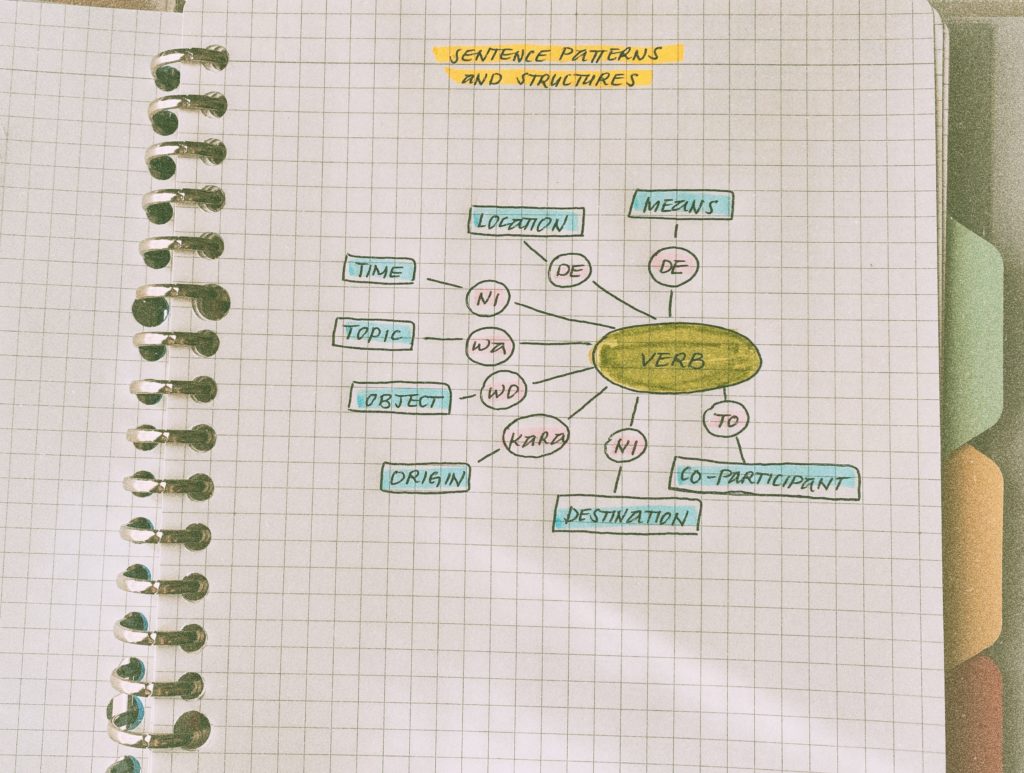 SENTENCE PATTERNS
AND STRUCTURES
LOCATION
MEANS
DE
DE
TIME
NI
TOPIC
WA
VERB
OBJECT
WO
KARA
NI
TO
ORIGIN
CO-PARTICIPANT
DESTINATION